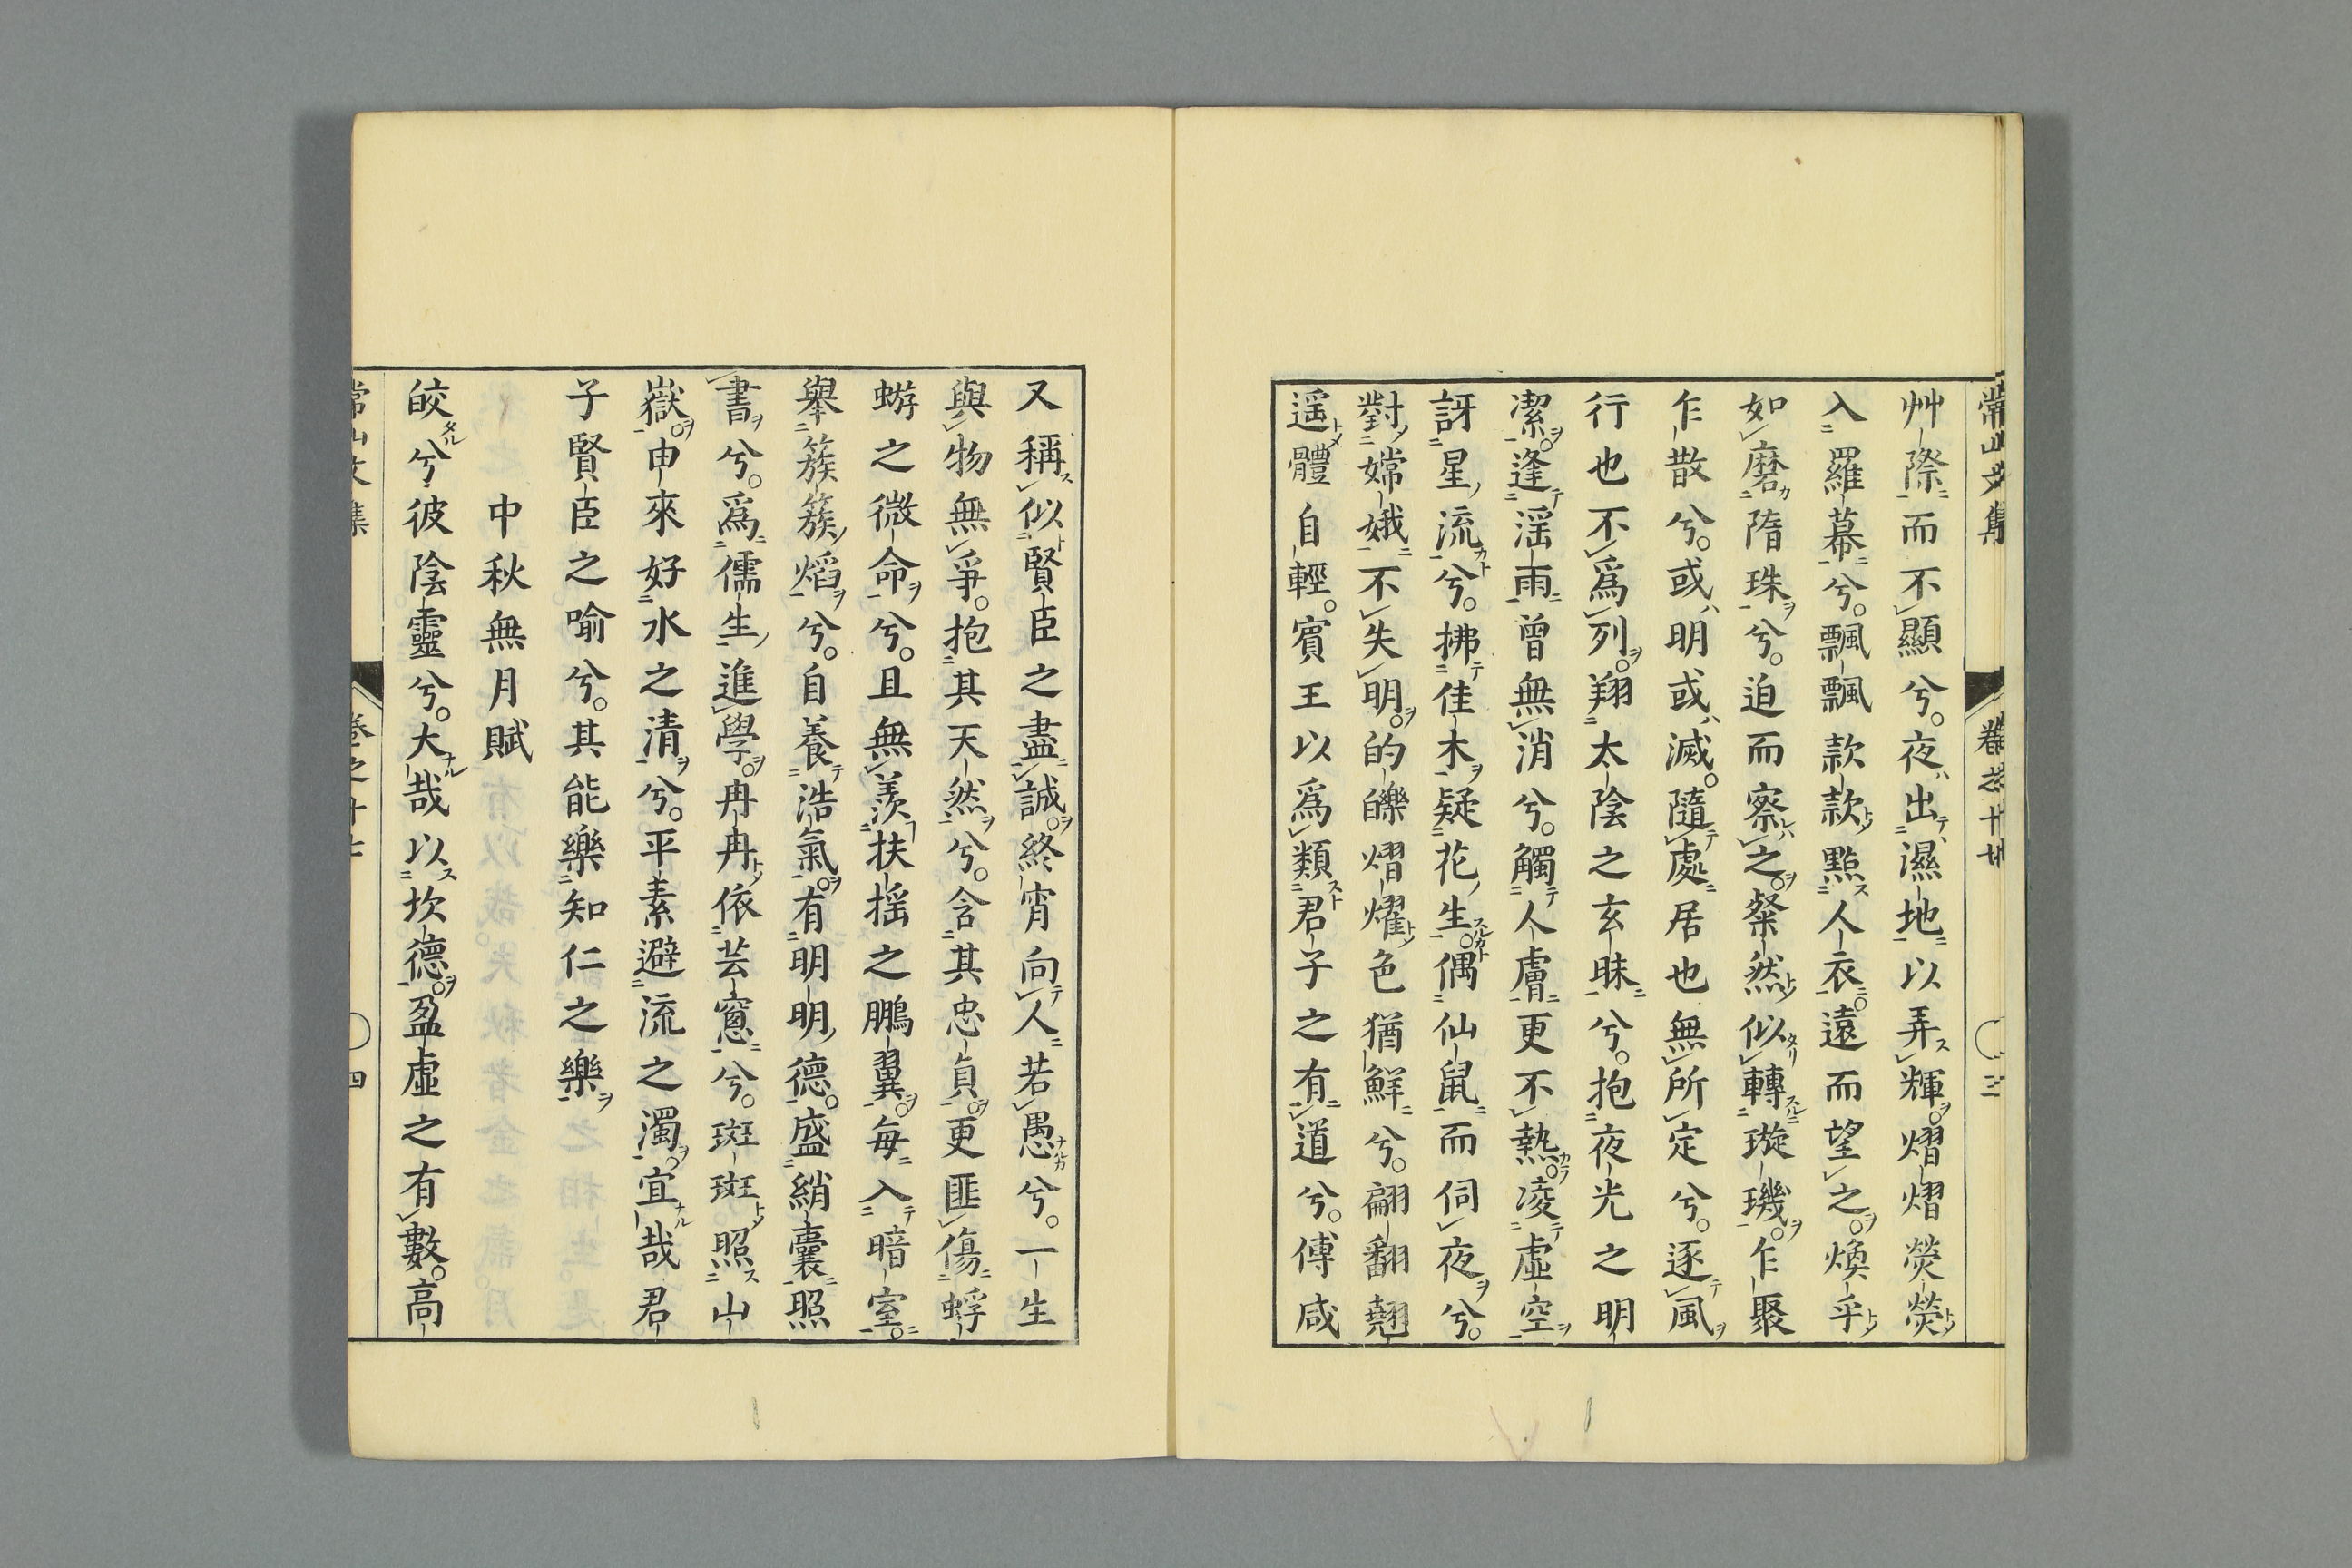 常山文集 卷之十七 三
艸際而不顯兮。夜出濕地以弄輝。熠熠熒熒
入羅幕兮。飄飄款款點人衣。遠而望之。煥乎
如磨隋珠兮。迫而察之。粲然似轉璇璣。乍聚
乍散兮。或明或滅。隨處居也無所定兮。逐風
行也不爲列。翔太陰之玄昧兮。抱夜光之明
潔。逢滛雨曾無消兮。觸人膚更不熱。凌虛空
訝星流兮。拂佳木疑花生。偶仙鼠而伺夜兮。
對嫦娥不失明。的皪熠燿色猶鮮兮。翩翻翹
遥體自輕。賓王以爲類君子之有道兮。傅咸
又稱似賢臣之盡誠。終宵向人若愚兮。一生
與物無爭。抱其天然兮。含其忠貞。更匪傷蜉
蝣之微命兮。且無羨扶揺之鵬翼。每入暗室。
舉簇簇熖兮。自養浩氣。有明明德。盛綃囊照
書兮。爲儒生進學。冉冉依芸窻兮。斑斑照山
嶽。申來好水之清兮。平素避流之濁。宜哉君
子賢臣之喻兮。其能樂知仁之樂
中秋無月賦
皎兮彼陰靈兮。大哉以坎德。盈虛之有數。高
常山文集 卷之十七 四